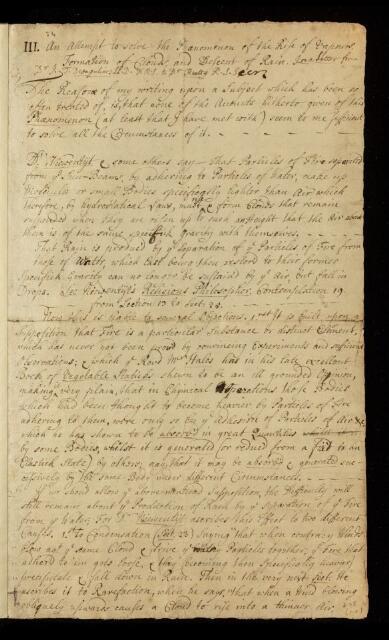 III. An Attempt to solve the Phænomenon of the Rise of Vapours,
Formation of Clouds and Descent of Rain. In a Letter from
J. T. Desaguliers LL.D. F.R.S. to Dr Rutty R. S. Secr.
The Reason of my writing upon a Subject which has been so
often treated of, is, that none of the Accounts hitherto given of this
Phænomenon (at least that I have met with) seem to me sufficient
to solve all the Circumstances of it.
Dr. Niewentyt & some others say that Particles of Fire separated
from ye Sun-Beams, by adhering to Particles of Water, make up
Moleculæ or small Bodies specifically lighter than Air which
therefore, by Hydrostatical Laws, must & form Clouds that remain
suspended when they are risen up to such an height that the Air about
them is of the same specifick Gravity with themselves.
That Rain is produced by ye separation of ye Particles of Fire from
those of Water, which last being then restored to their former
Specifick Gravity can no longer be sustain'd by ye Air, but fall in
Drops. See Niewentyt's Religious Philosopher, Contemplation 19.
from Section 13 to Sect. 25.
Now this is liable to several Objections. 1st It is built upon a
Supposition that Fire is a particular Substance or distinct Element,
which has never yet been prov'd by convincing Experiments and sufficient
Observations; & which ye Revd Mr Hales has in his late excellent
Book of Vegetable Staticks shewn to be an ill grounded Opinion,
making very plain, that in Chymical Operations those Bodies
which had been thought to become heavier by Particles of Fire
adhering to them, were only so by ye Adhesion of Particles of Air &c.
which he has shewn to be absorb'd in great Quantities
by some Bodies, whilst it is generated (or reduced from a fixt to an
Elastick State) by others; nay, that it may be absorb'd & generated suc-
cessively by the same Body under different Circumstances.
should allow ye abovemention'd Supposition, the Difficulty will
still remain about ye Production of Rain by ye separation of ye Fire
from ye Water; For Dr Niewentyt ascribes this Effect to two different
Causes. 1st To Condensation (Sect. 23) saying That when contrary Winds
blow agt ye same Cloud & drive ye Particles together; ye Fire that
adher'd to 'em gets loose, & they becoming then Specifically heavier,
precipitate & fall down in Rain. Then in the very next Sect. He
ascribes it to Rarefaction, when he says, That when a Wind blowing
obliquely upwards causes a Cloud to rise into a thinner Air,